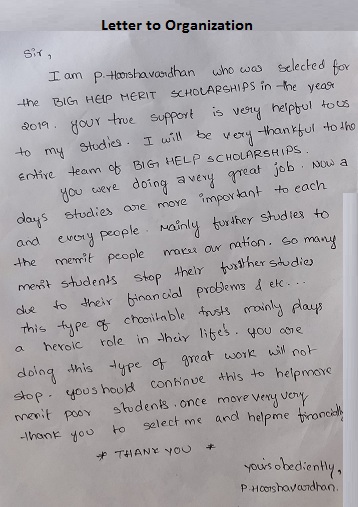 Letter to Organization
Sir,
I am P. Harshavardhan who was selected for
the BIG HELP MERIT SCHOLARSHIPS in the year
2019. your true support is very helpful to us
to my studies. I will be very thankful to the
entire team of BIG HELP SCHOLARSHIPS.
you were doing a very great job. Now a
days studies are more important to each
and every people. Mainly further studies to
the merrit people makes our nation. So many
merit students stop their further studies
due to their financial problems & etc...
this type of charitable trusts mainly plays
a heroic role in their life's. you are
doing this type of great work will not
stop. you should continue this to help more
merit poor students. once more very very
thank you to select me and help me financially
* THANK YOU *
yours obediently,
P. Harshavardhan.